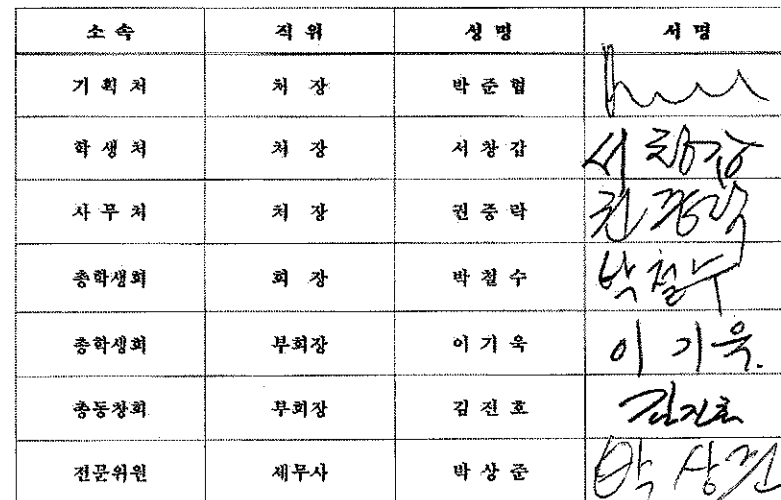 소 속 직 위 성 명 서 명
기 획 처 처 장 박 준 협
학 생 처 처 장 서 창 갑 서창갑
사 무 처 처 장 권 중 락
총학생회 회 장 박 철 수 박철수
총학생회 부회장 이 기 욱 이 기 욱.
총동창회 부회장 김 진 호 김진호
전문위원 세무사 박 상 준 박 상 준